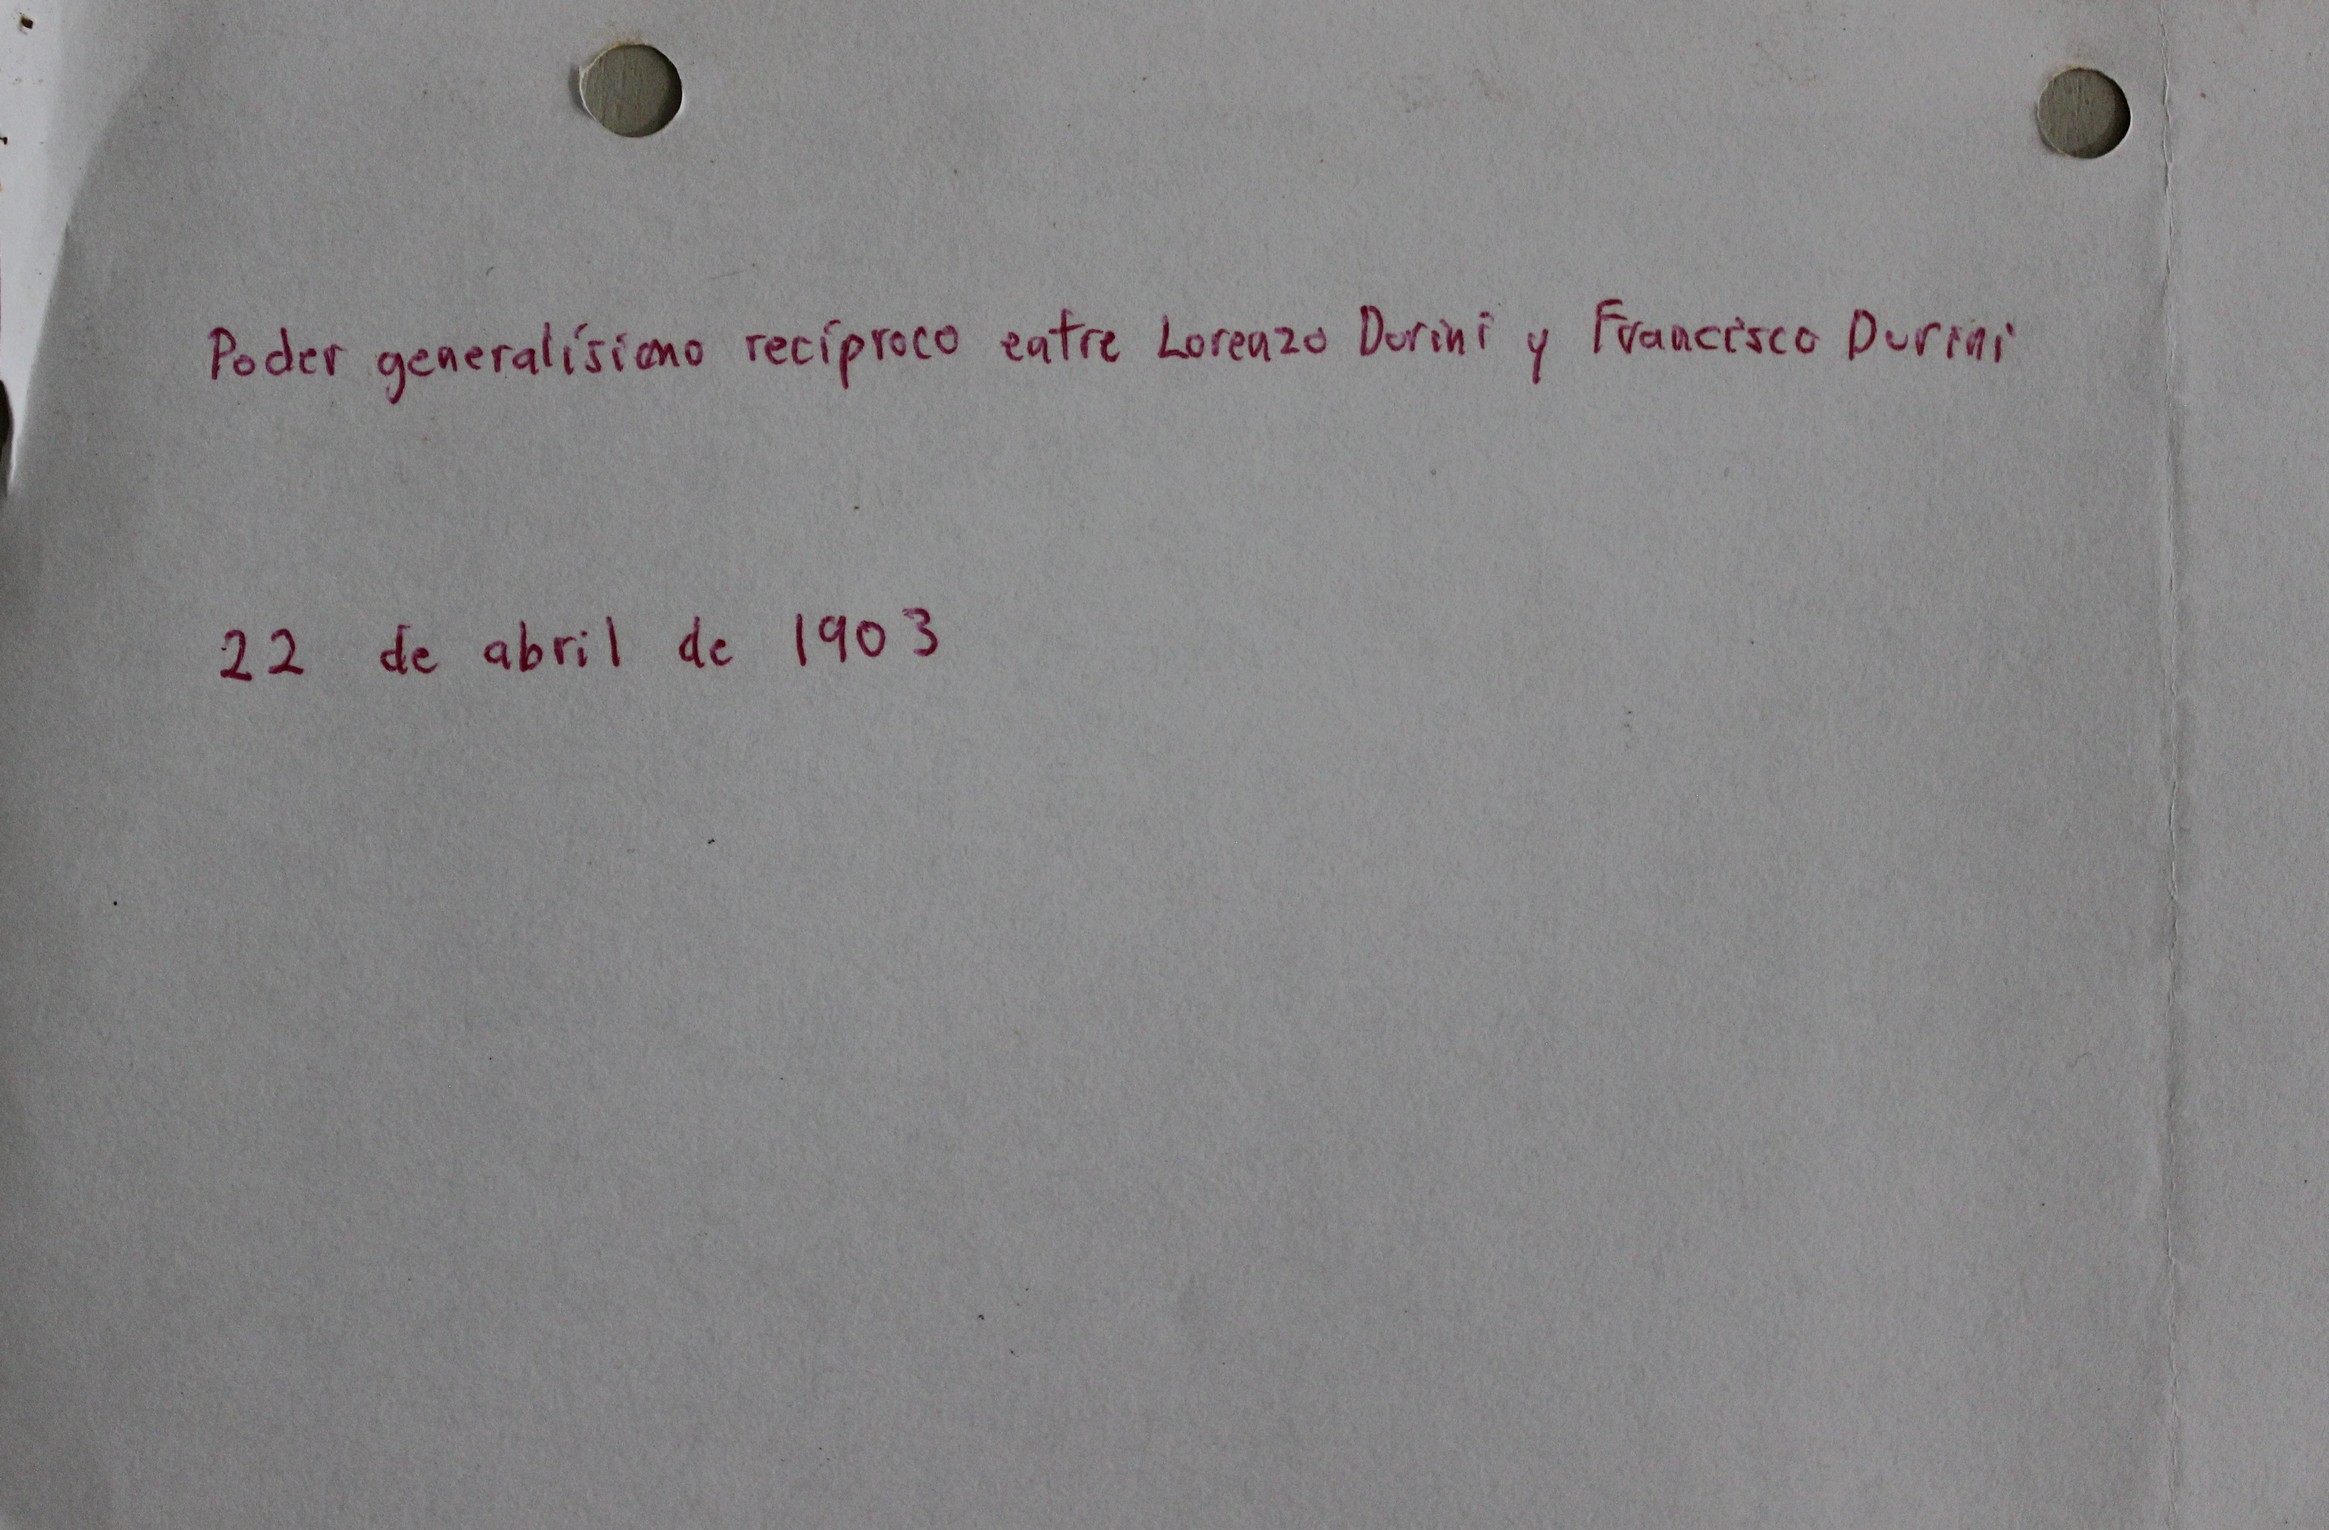 Poder generalísimo recíproco entre Lorenzo Durini y Francisco Durini
22 de abril de 1903